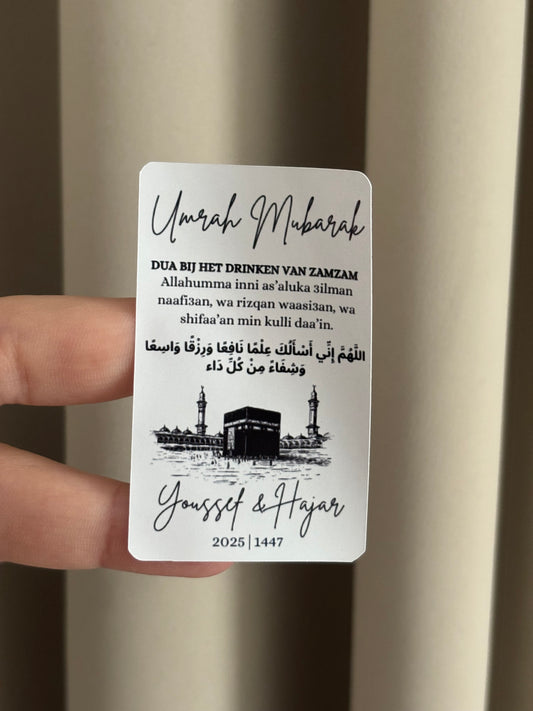 Umrah Mubarak
DUA BIJ HET DRINKEN VAN ZAMZAM
Allahumma inni as’aluka 3ilman
naafi3an, wa rizqan waasi3an, wa
shifaa’an min kulli daa’in.
اللَّهُمَّ إِنِّي أَسْأَلُكَ عِلْمًا نَافِعًا وَرِزْقًا وَاسِعًا
وَشِفَاءً مِنْ كُلِّ دَاء
Youssef & Hajar
2025 | 1447